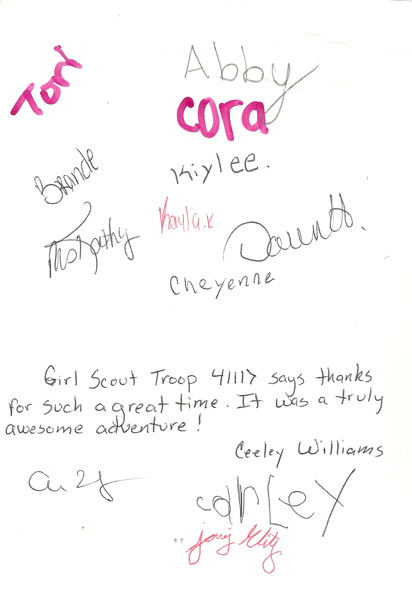 Tori
Abby
Cora
Brande
Kiylee.
Kayla.K
Cheyenne
Girl Scout Troop 41117 says thanks
for such a great time. It was a truly
awesome adventure!
Ceeley Williams
carley